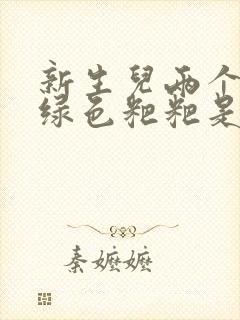 新生兒兩个
绿色粑粑是
秦嬷嬷